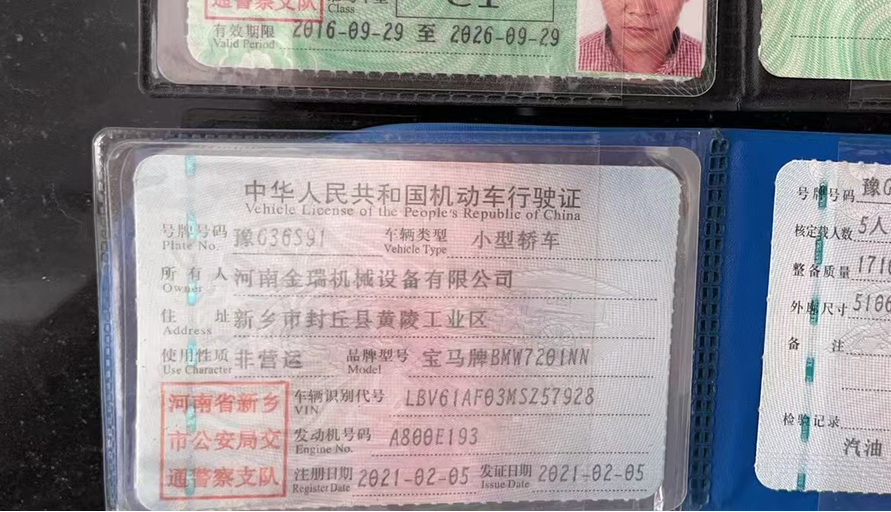 通警察支队
Class
C1
有效期限 2016-09-29 至 2026-09-29
Valid Period
中华人民共和国机动车行驶证
Vehicle License of the People's Republic of China
号牌号码 豫G36S91 车辆类型 小型轿车
Plate No. Vehicle Type
所有人 河南金瑞机械设备有限公司
Owner
住址 新乡市封丘县黄陵工业区
Address
使用性质 非营运 品牌型号 宝马牌BMW7201NN
Use Character Model
河南省新乡
市公安局交
通警察支队
车辆识别代号 LBV61AF03MSZ57928
VIN
发动机号码 A800E193
Engine No.
注册日期 2021-02-05 发证日期 2021-02-05
Register Date Issue Date
号牌号码 豫G
核定载人数 5人
整备质量 171
外廓尺寸 510
备注
检验记录
汽油